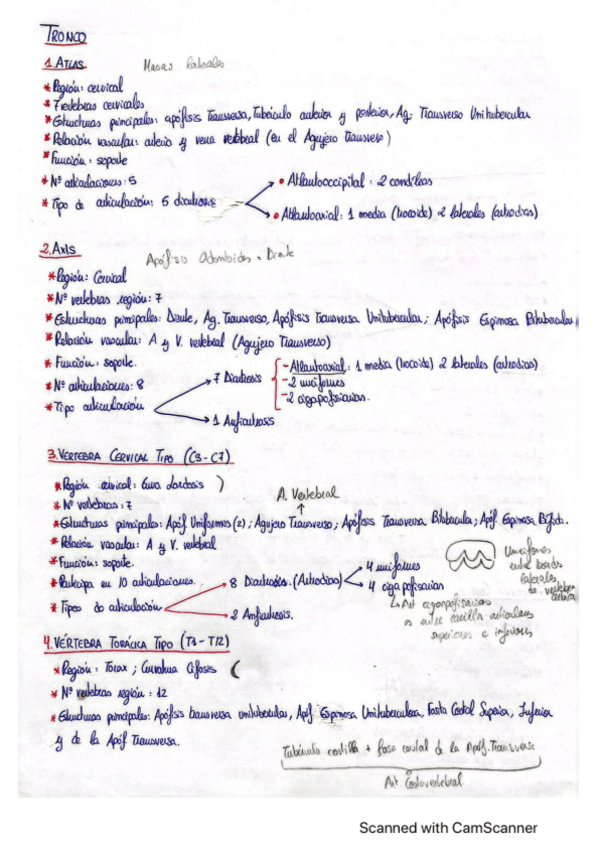 TRONCO
1. ATLAS
Masas laterales
* Región: cervical
* 7 vertebras cervicales
* Estructuras principales: apófisis Transversa, Tubérculo anterior y posterior, Ag. Transverso Unitubercular
* Relación vascular: arteria y vena vertebral (en el Agujero Transverso)
* Función: soporte
* Nº articulaciones: 5
* Tipo de articulación: 5 diartrosis
• Atlantooccipital: 2 condíleas
• Atlantoaxial: 1 media (trocoide) 2 laterales (artrodias)
2. AXIS
Apófisis Odontoides = Diente
* Región: Cervical
* Nº vertebras región: 7
* Estructuras principales: Diente, Ag. Transverso, Apófisis Transversa Unitubercular; Apófisis Espinosa Bitubercular
* Relación vascular: A y V. vertebral (Agujero Transverso)
* Función: soporte.
* Nº articulaciones: 8
* Tipo articulación
7 Diartrosis
- Atlantoaxial: 1 media (trocoide) 2 laterales (artrodias)
- 2 unciformes
- 2 cigapofisarias.
1 Anfiartrosis
3. VERTEBRA CERVICAL TIPO (C3-C7)
* Región cervical: Curva Lordosis )
* Nº vertebras: 7
A. Vertebral
* Estructuras principales: Apóf. Uniformes (2); Agujero Transverso; Apófisis Transversa Bitubercula; Apóf. Espinosa Bífida.
* Relación vascular: A y V. vertebral
* Función: soporte.
* Participa en 10 articulaciones.
* Tipos de articulación
8 Diartrosis. (Artrodias)
4 unciformes
4 cigapofisarias
2 Anfiartrosis.
Unciformes
entre bordes
laterales
de vertebra
Art cigapofisarias
es entre carilla articulares
superiores e inferiores
4. VÉRTEBRA TORÁCICA TIPO (T1-T12)
* Región: Torax; Curvatura Cifosis (
* Nº vertebras región: 12
* Estructuras principales: Apófisis transversa unitubercular, Apóf. Espinosa Unitubercular, Fosita Costal Superior, Inferior
y de la Apóf Transversa.
Tubérculo costilla + fosa costal de la Apóf. Transverse
Art. Costovertebral.
Scanned with CamScanner